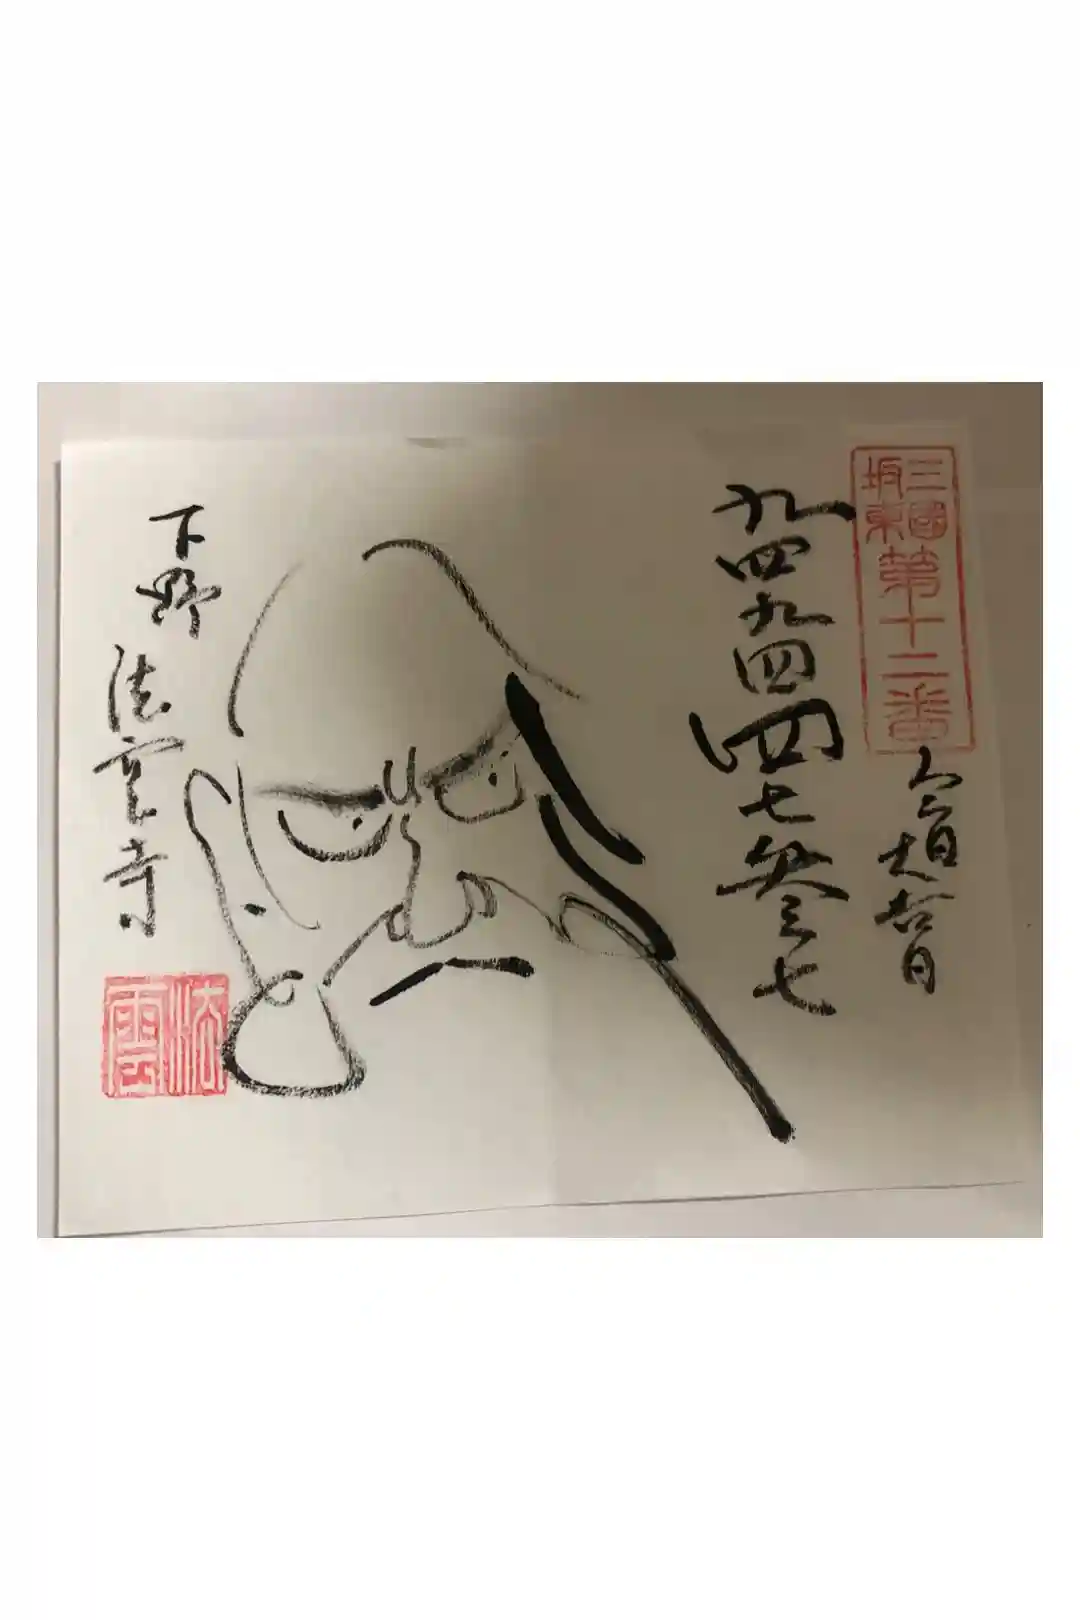 三國
坂東
第十二番
大吉日
九四九四四七参七
下野 法雲寺
法雲